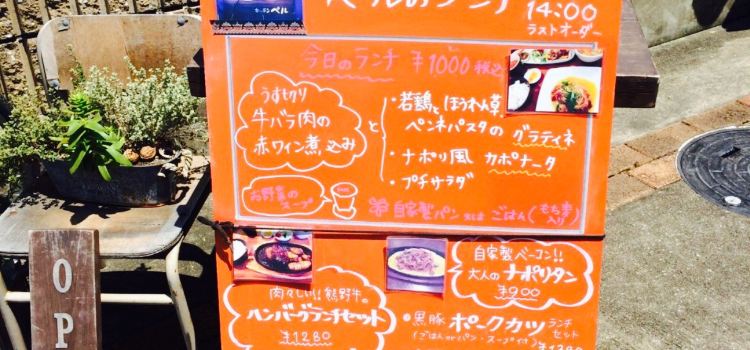 ベル
ベルのランチ
14:00
ラストオーダー
今日のランチ ¥1000 税込
うす切り
牛バラ肉の
赤ワイン煮込み
と
・若鶏とほうれん草
ペンネパスタの グラティネ
・ナポリ風 カポナータ
・プチサラダ
お野菜の
スープ
自家製パン 又は ごはん(もち麦入り)
自家製ベーコン!!
大人のナポリタン
¥900
肉々しい!! 熊野牛の
ハンバーグランチセット
¥1280
・黒豚 ポークカツ ランチセット
(ごはんorパン・スープ付)
OP